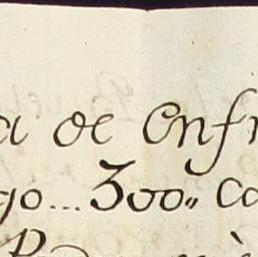 a de Enfr
go... 300,, Ca